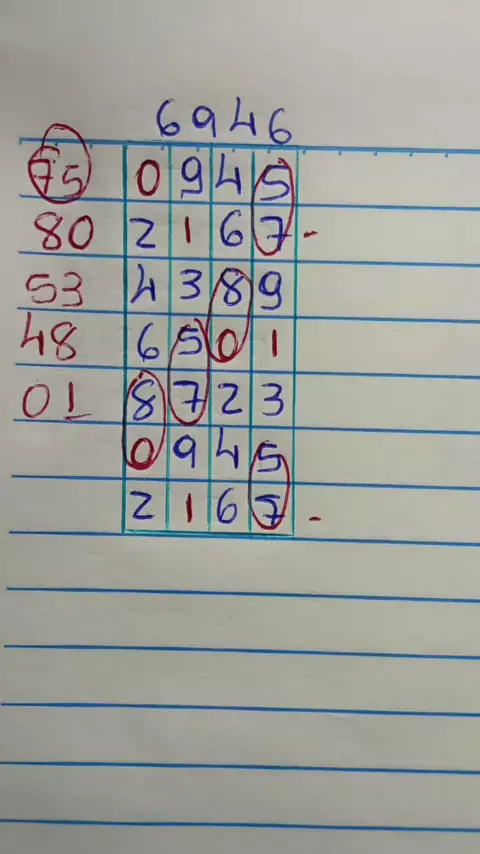 6946
75 0 9 4 5
80 2 1 6 7 -
53 4 3 8 9
48 6 5 0 1
01 8 7 2 3
0 9 4 5
2 1 6 7 -